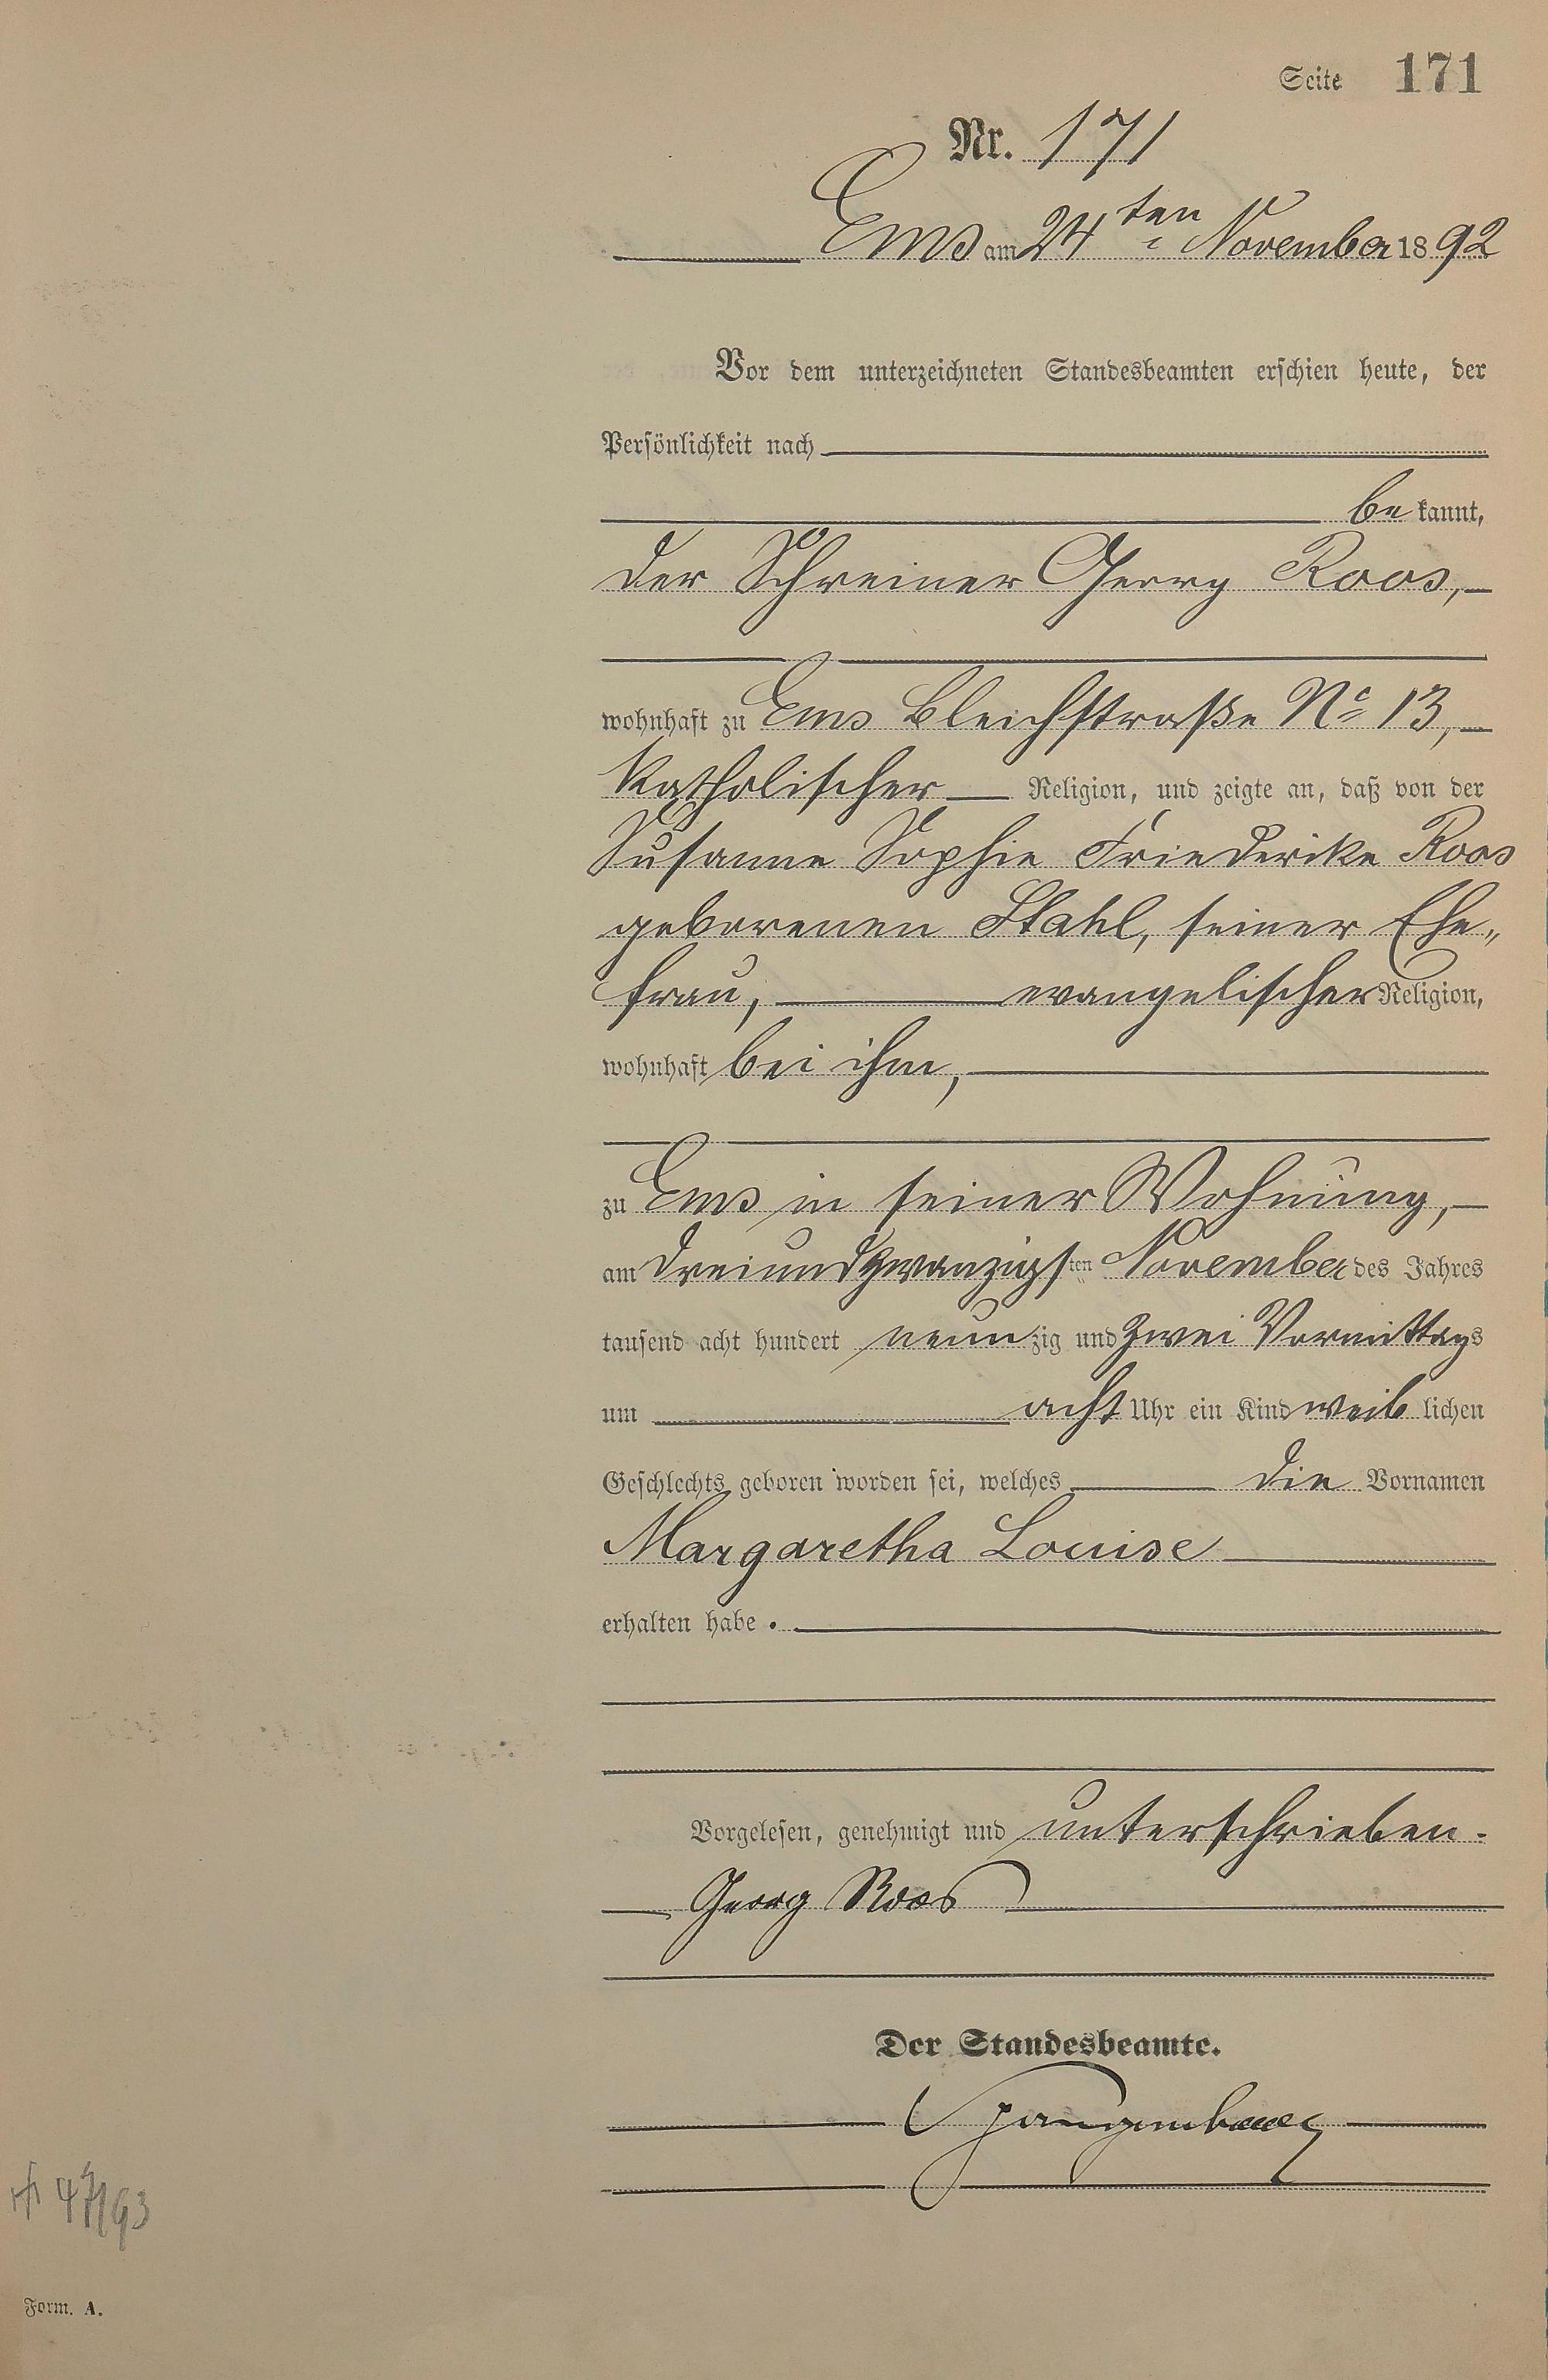 Seite 171
Nr. 171
Ems am 24ten November 1892
Vor dem unterzeichneten Standesbeamten erschien heute, der
Persönlichkeit nach
bekannt,
der Schreiner Georg Roos,
wohnhaft zu Ems Bleichstraße No 13,
katholischer Religion, und zeigte an, daß von der
Susanne Sophie Friederike Roos
geborenen Stahl, seiner Ehe„
frau, evangelischer Religion,
wohnhaft bei ihm,
zu Ems in seiner Wohnung,
am dreiundzwanzigsten November des Jahres
tausend acht hundert neunzig und zwei Vormittags
um acht Uhr ein Kind weiblichen
Geschlechts geboren worden sei, welches die Vornamen
Margaretha Louise
erhalten habe.
Vorgelesen, genehmigt und unterschrieben.
Georg Roos
Der Standesbeamte.
Spangenberg
Form. A.